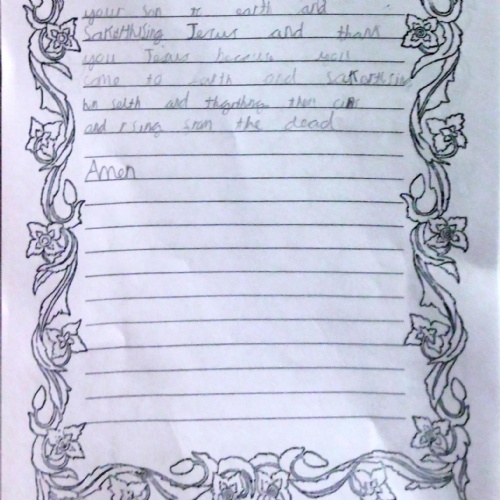 your son to earth and
Sakerthising Jesus and thank
you Jesus because you
came to earth and
him and then
and rising from the dead
Amen